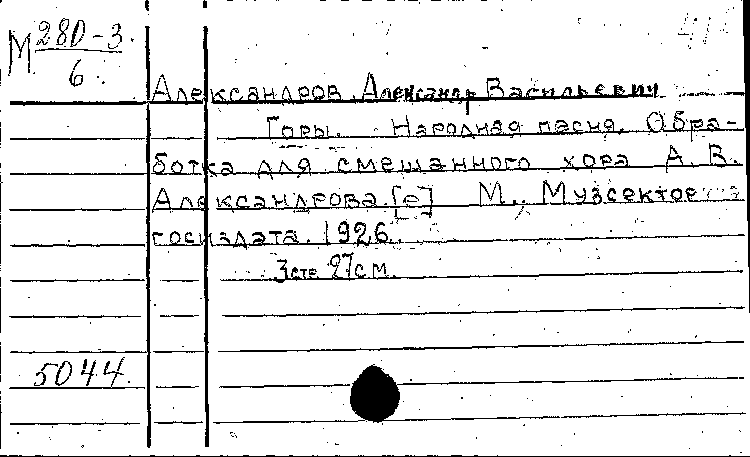 М 280-3
6
Александров, Александр Васильевич
Горы. Народная песня. Обра-
ботка для смешанного хора А. В.
Александрова. [e] М., Музсектор
госиздата. 1926.
3 стр. 27 см.
5044